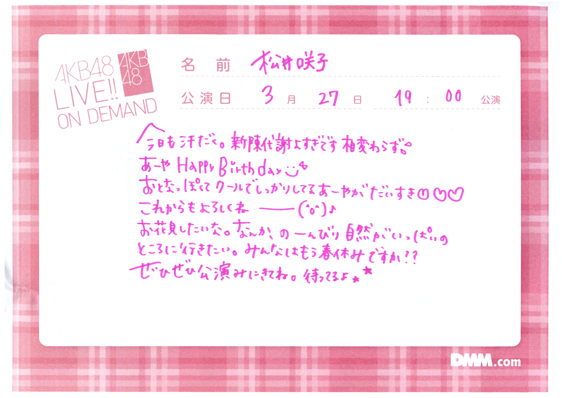 AKB48
LIVE!!
ON DEMAND
AKB
48
名 前 松井咲子
公演日 3月27日 19:00公演
今日も汗だく。新陳代謝よすぎです相変わらず。
あーや Happy Birthday
おとなっぽくてクールでしっかりしてるあーやがだいすき♡♡♡
これからもよろしくね ——(^o^)♪
お花見したいな。なんか、のーんびり自然がいっぱいの
ところに行きたい。みんなはもう春休みですか??
ぜひぜひ公演みにきてね。待ってるよ★★
DMM.com